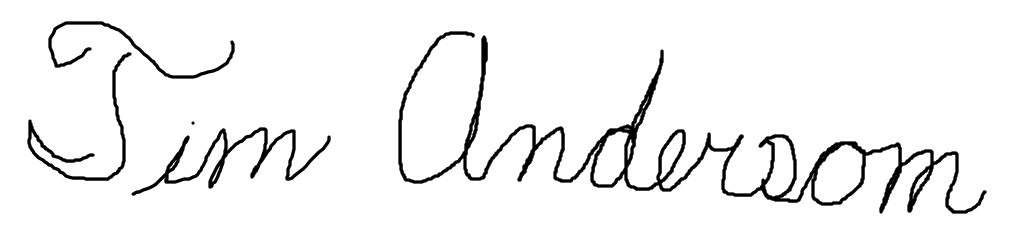 Tim Andersom